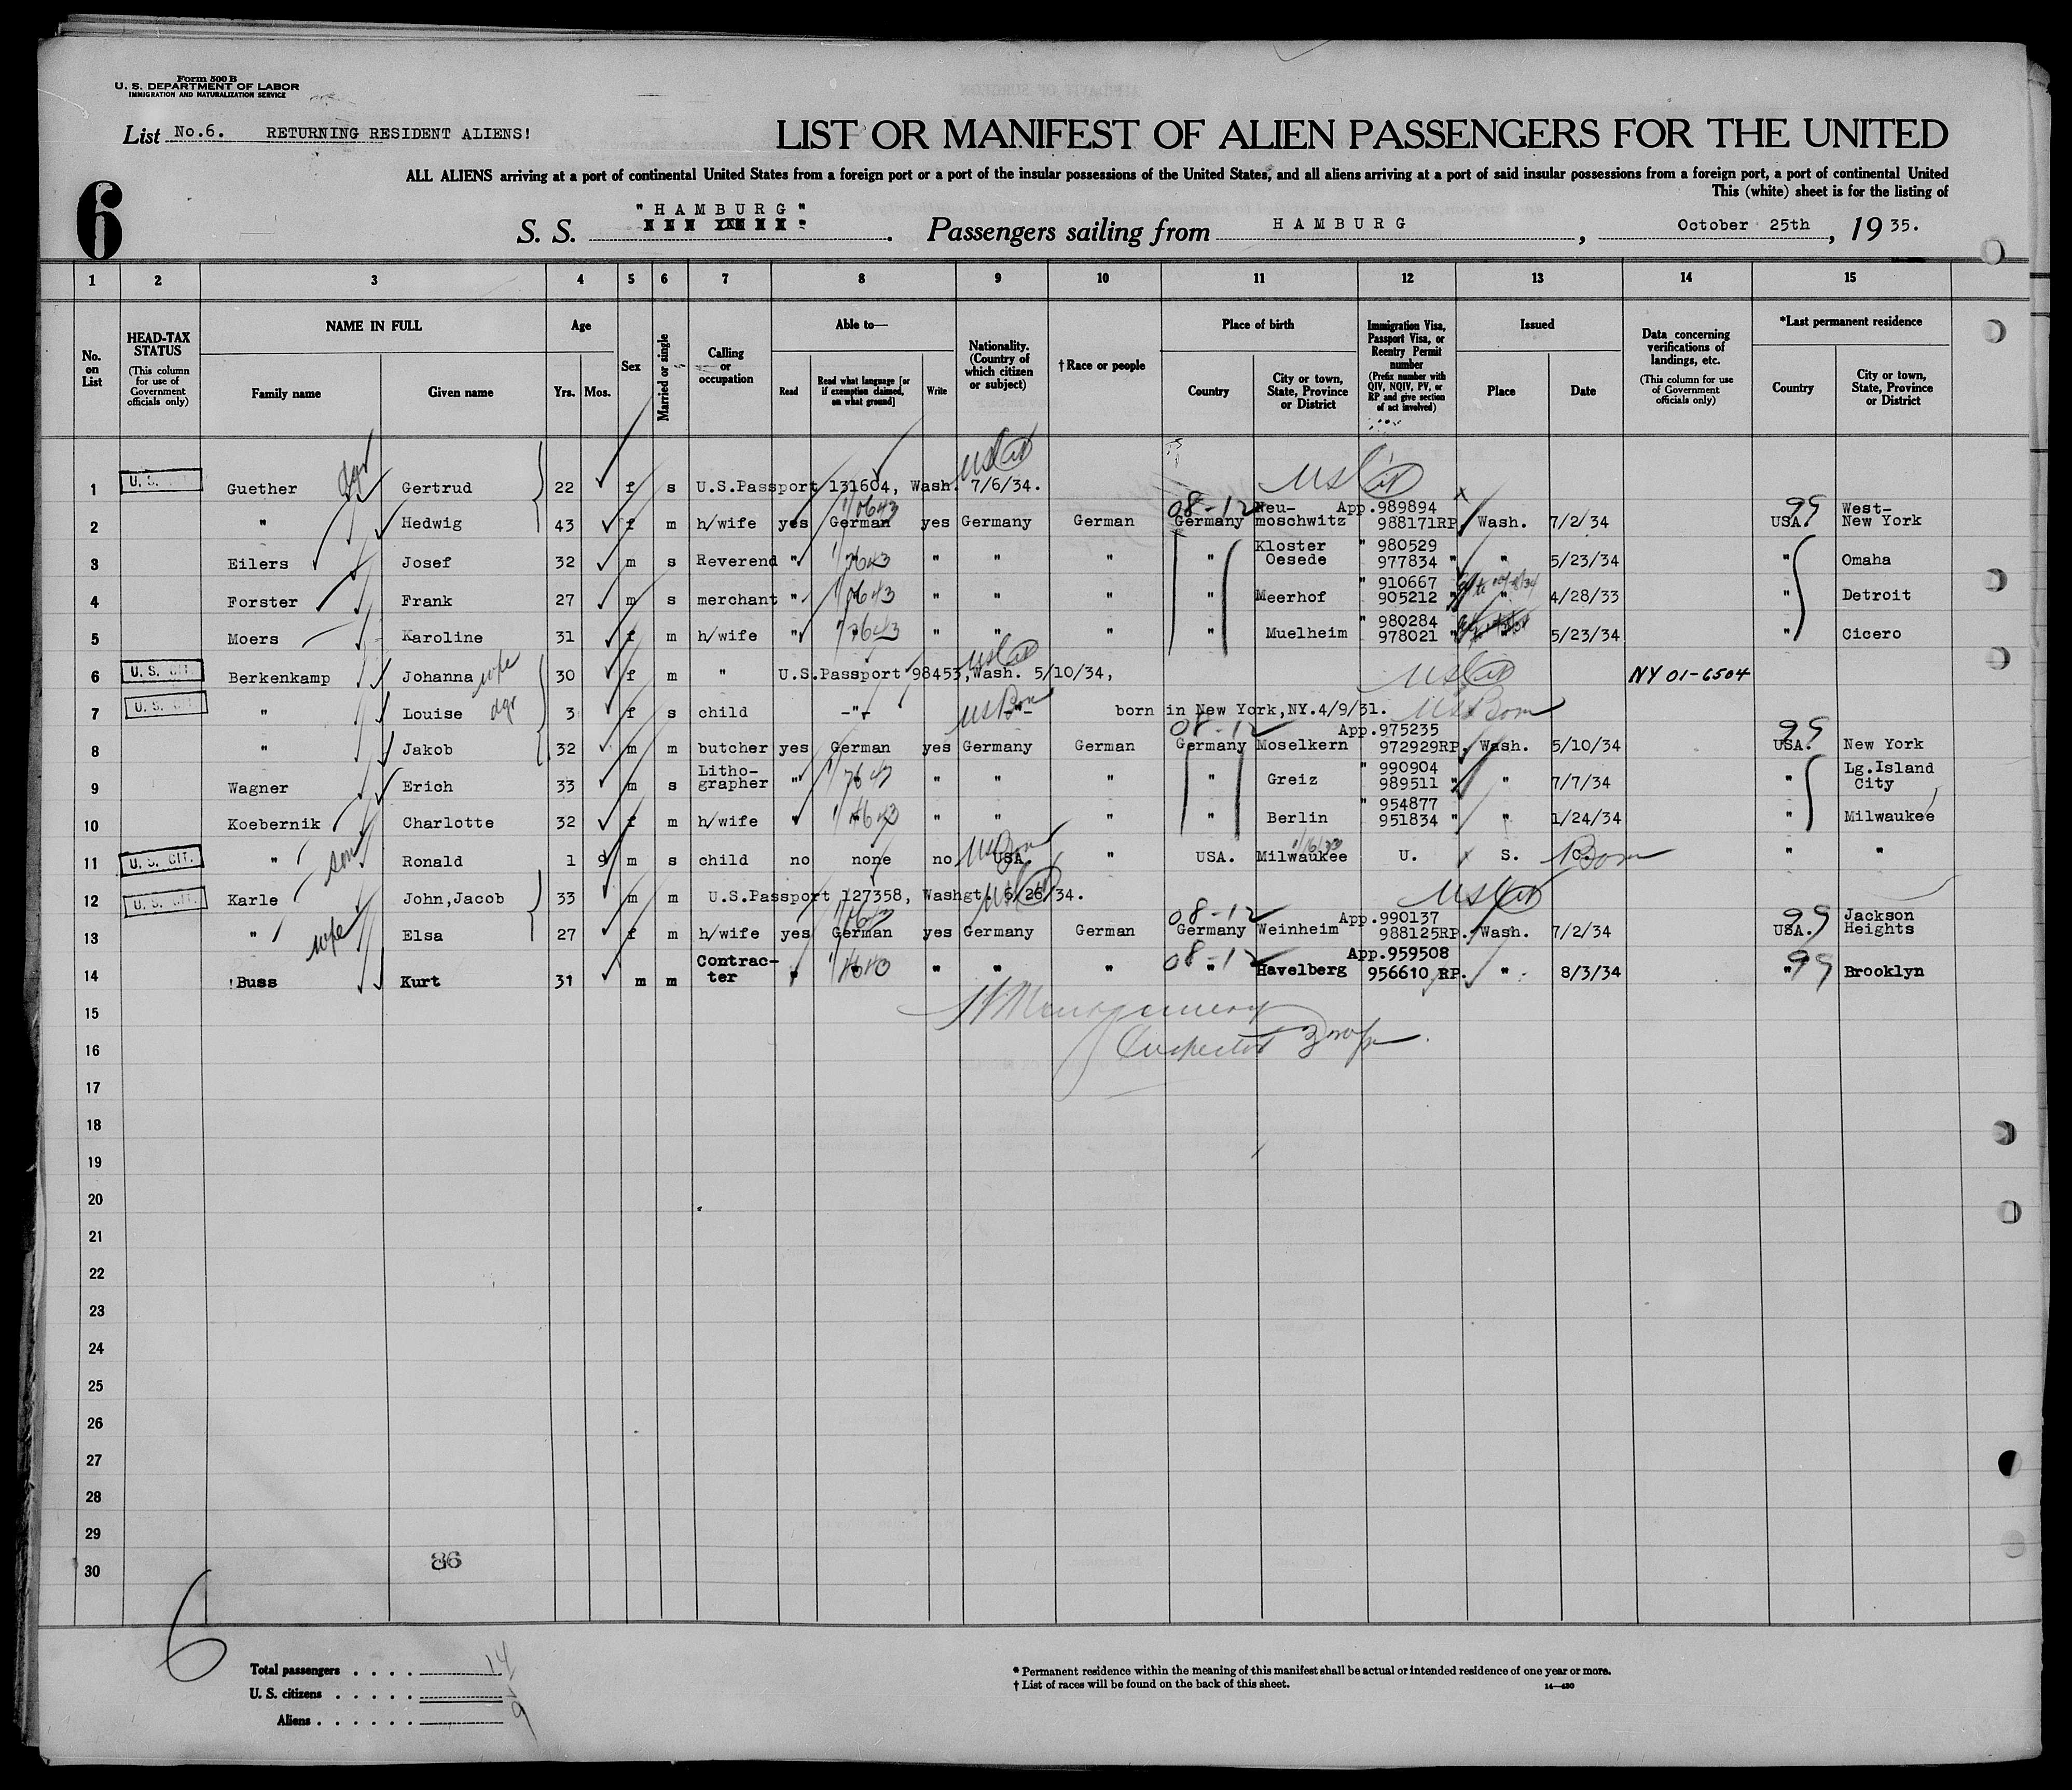 Form 500 B
U. S. DEPARTMENT OF LABOR
IMMIGRATION AND NATURALIZATION SERVICE
List No.6. RETURNING RESIDENT ALIENS!
LIST OR MANIFEST OF ALIEN PASSENGERS FOR THE UNITED
ALL ALIENS arriving at a port of continental United States from a foreign port or a port of the insular possessions of the United States, and all aliens arriving at a port of said insular possessions from a foreign port, a port of continental United
This (white) sheet is for the listing of
6
S. S. "HAMBURG". Passengers sailing from HAMBURG, October 25th, 1935.
1 2 3 4 5 6 7 8 9 10 11 12 13 14 15
No. on List
HEAD-TAX STATUS (This column for use of Government officials only)
NAME IN FULL Family name Given name
Age Yrs. Mos.
Sex
Married or single
Calling or occupation
Able to— Read Read what language [or if exemption claimed, on what ground] Write
Nationality. (Country of which citizen or subject)
†Race or people
Place of birth Country City or town, State, Province or District
Immigration Visa, Passport Visa, or Reentry Permit number (Prefix number with QIV, NQIV, PV, or RP and give section of act involved)
Issued Place Date
Data concerning verifications of landings, etc. (This column for use of Government officials only)
*Last permanent residence Country City or town, State, Province or District
1 U. S. CIT. Guether dgr Gertrud 22 f s U.S.Passport 131604, Wash. 7/6/34. US Cit US Cit
2 " Hedwig 43 f m h/wife yes German yes Germany German 08-12 Germany Neu-moschwitz App.989894 988171RP. Wash. 7/2/34 99 USA. West-New York
3 Eilers Josef 32 m s Reverend " " " " " " Kloster Oesede " 980529 977834 " " 5/23/34 " Omaha
4 Forster Frank 27 m s merchant " " " " " " Meerhof " 910667 905212 " " 4/28/33 " Detroit
5 Moers Karoline 31 f m h/wife " " " " " " Muelheim " 980284 978021 " " 5/23/34 " Cicero
6 U. S. CIT. Berkenkamp Johanna wife 30 f m " U.S.Passport 98453,Wash. 5/10/34, US Cit US Cit NY 01-6504
7 U. S. CIT. " Louise dgr 3 f s child -"- US Born -"- born in New York,NY.4/9/31. US Born
8 " Jakob 32 m m butcher yes German yes Germany German 08-12 Germany Moselkern App.975235 972929RP. Wash. 5/10/34 99 USA. New York
9 Wagner Erich 33 m s Litho-grapher " " " " " " Greiz " 990904 989511 " " 7/7/34 " Lg.Island City
10 Koebernik Charlotte 32 f m h/wife " " " " " " Berlin " 954877 951834 " " 1/24/34 " Milwaukee
11 U. S. CIT. " son Ronald 1 9 m s child no none no US Born USA. " USA. Milwaukee 1/16/33 U. S. C. Born " "
12 U. S. CIT. Karle John,Jacob 33 m m U.S.Passport 127358, Washgt. 6/26/34. US Cit US Cit
13 " wife Elsa 27 f m h/wife yes German yes Germany German 08-12 Germany Weinheim App.990137 988125RP. Wash. 7/2/34 99 USA. Jackson Heights
14 Buss Kurt 31 m m Contrac-ter " " " " " 08-12 " Havelberg App.959508 956610 RP. " 8/3/34 99 " Brooklyn
15
16 Inspector
17
18
19
20
21
22
23
24
25
26
27
28
29
30
86
6
Total passengers . . . . 14
U. S. citizens . . . . . 5
Aliens . . . . . . 9
* Permanent residence within the meaning of this manifest shall be actual or intended residence of one year or more.
† List of races will be found on the back of this sheet.
14—430